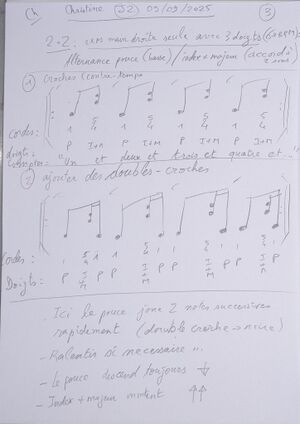 Ch Christine (J2) 09/09/2025 (3)
2-2. main droite seule avec 3 doigts
Alternance pouce (basse) / index+majeur (accords 2 sons)
① Croches / contre-temps
Cordes : 1 5 4 1 5 4 1 5 4 1 5 4
doigts : P I+M P I+M P I+M P I+M
"Un et deux et trois et quatre et ..."
② ajouter des doubles-croches
Cordes :
Doigts : P I+M P P I+M P P I+M P P I+M P
- Ici le pouce joue 2 notes successives
rapidement (double croche → noire)
- Ralentir si nécessaire ...
- Le pouce descend toujours ↓
- Index + majeur montent ↑↑